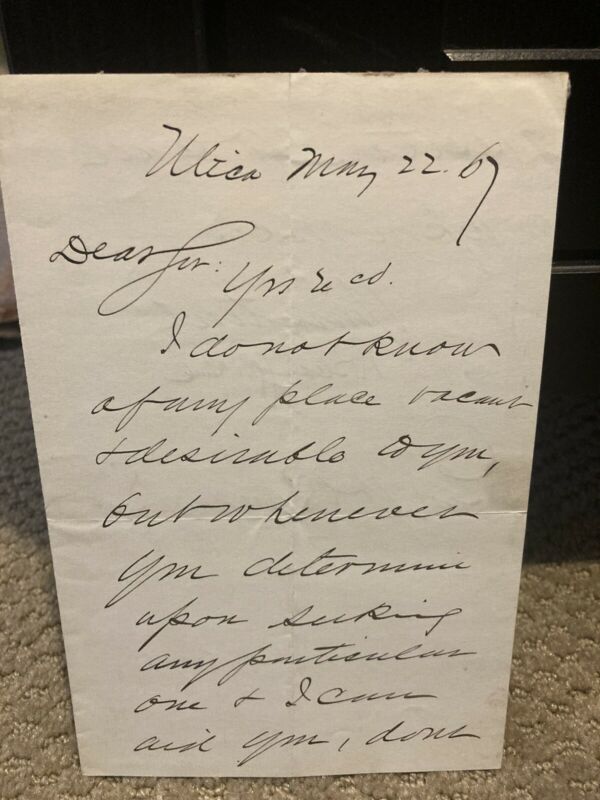 Utica May 22. 67
Dear Sir:
Yrs recd.
I do not know
of any place vacant
& desirable to you,
but whenever
you determine
upon seeking
any particular
one & I can
aid you, dont